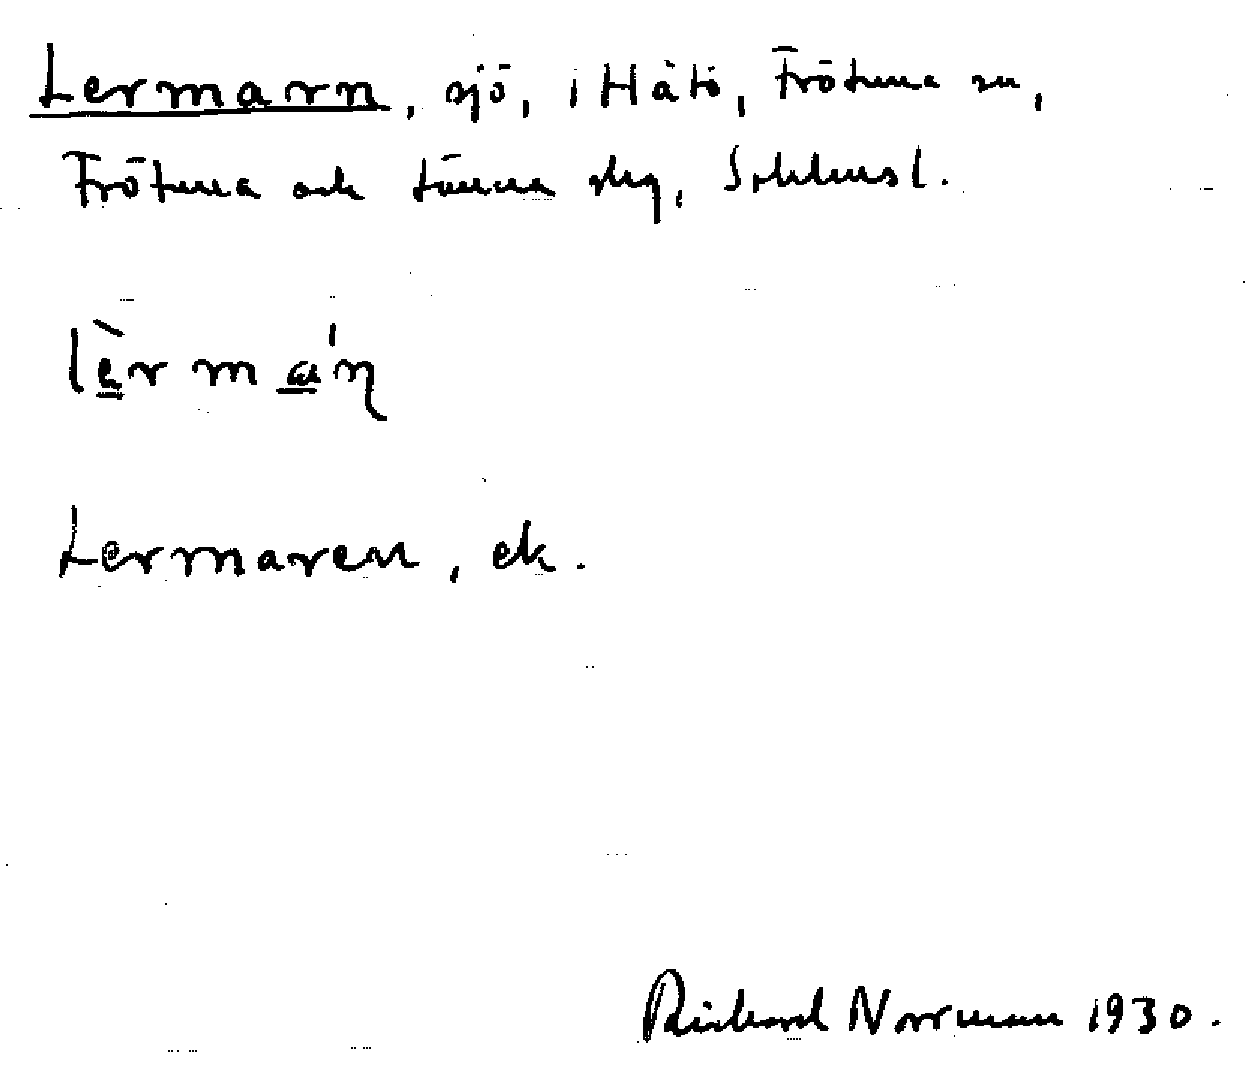 Lermarn, sjö, i Håtö, Frötuna sn,
Frötuna och Länna skg, Sthlms l.
lèrmaꞌn̥
Lermaren, ek.
Rickard Norrman 1930.